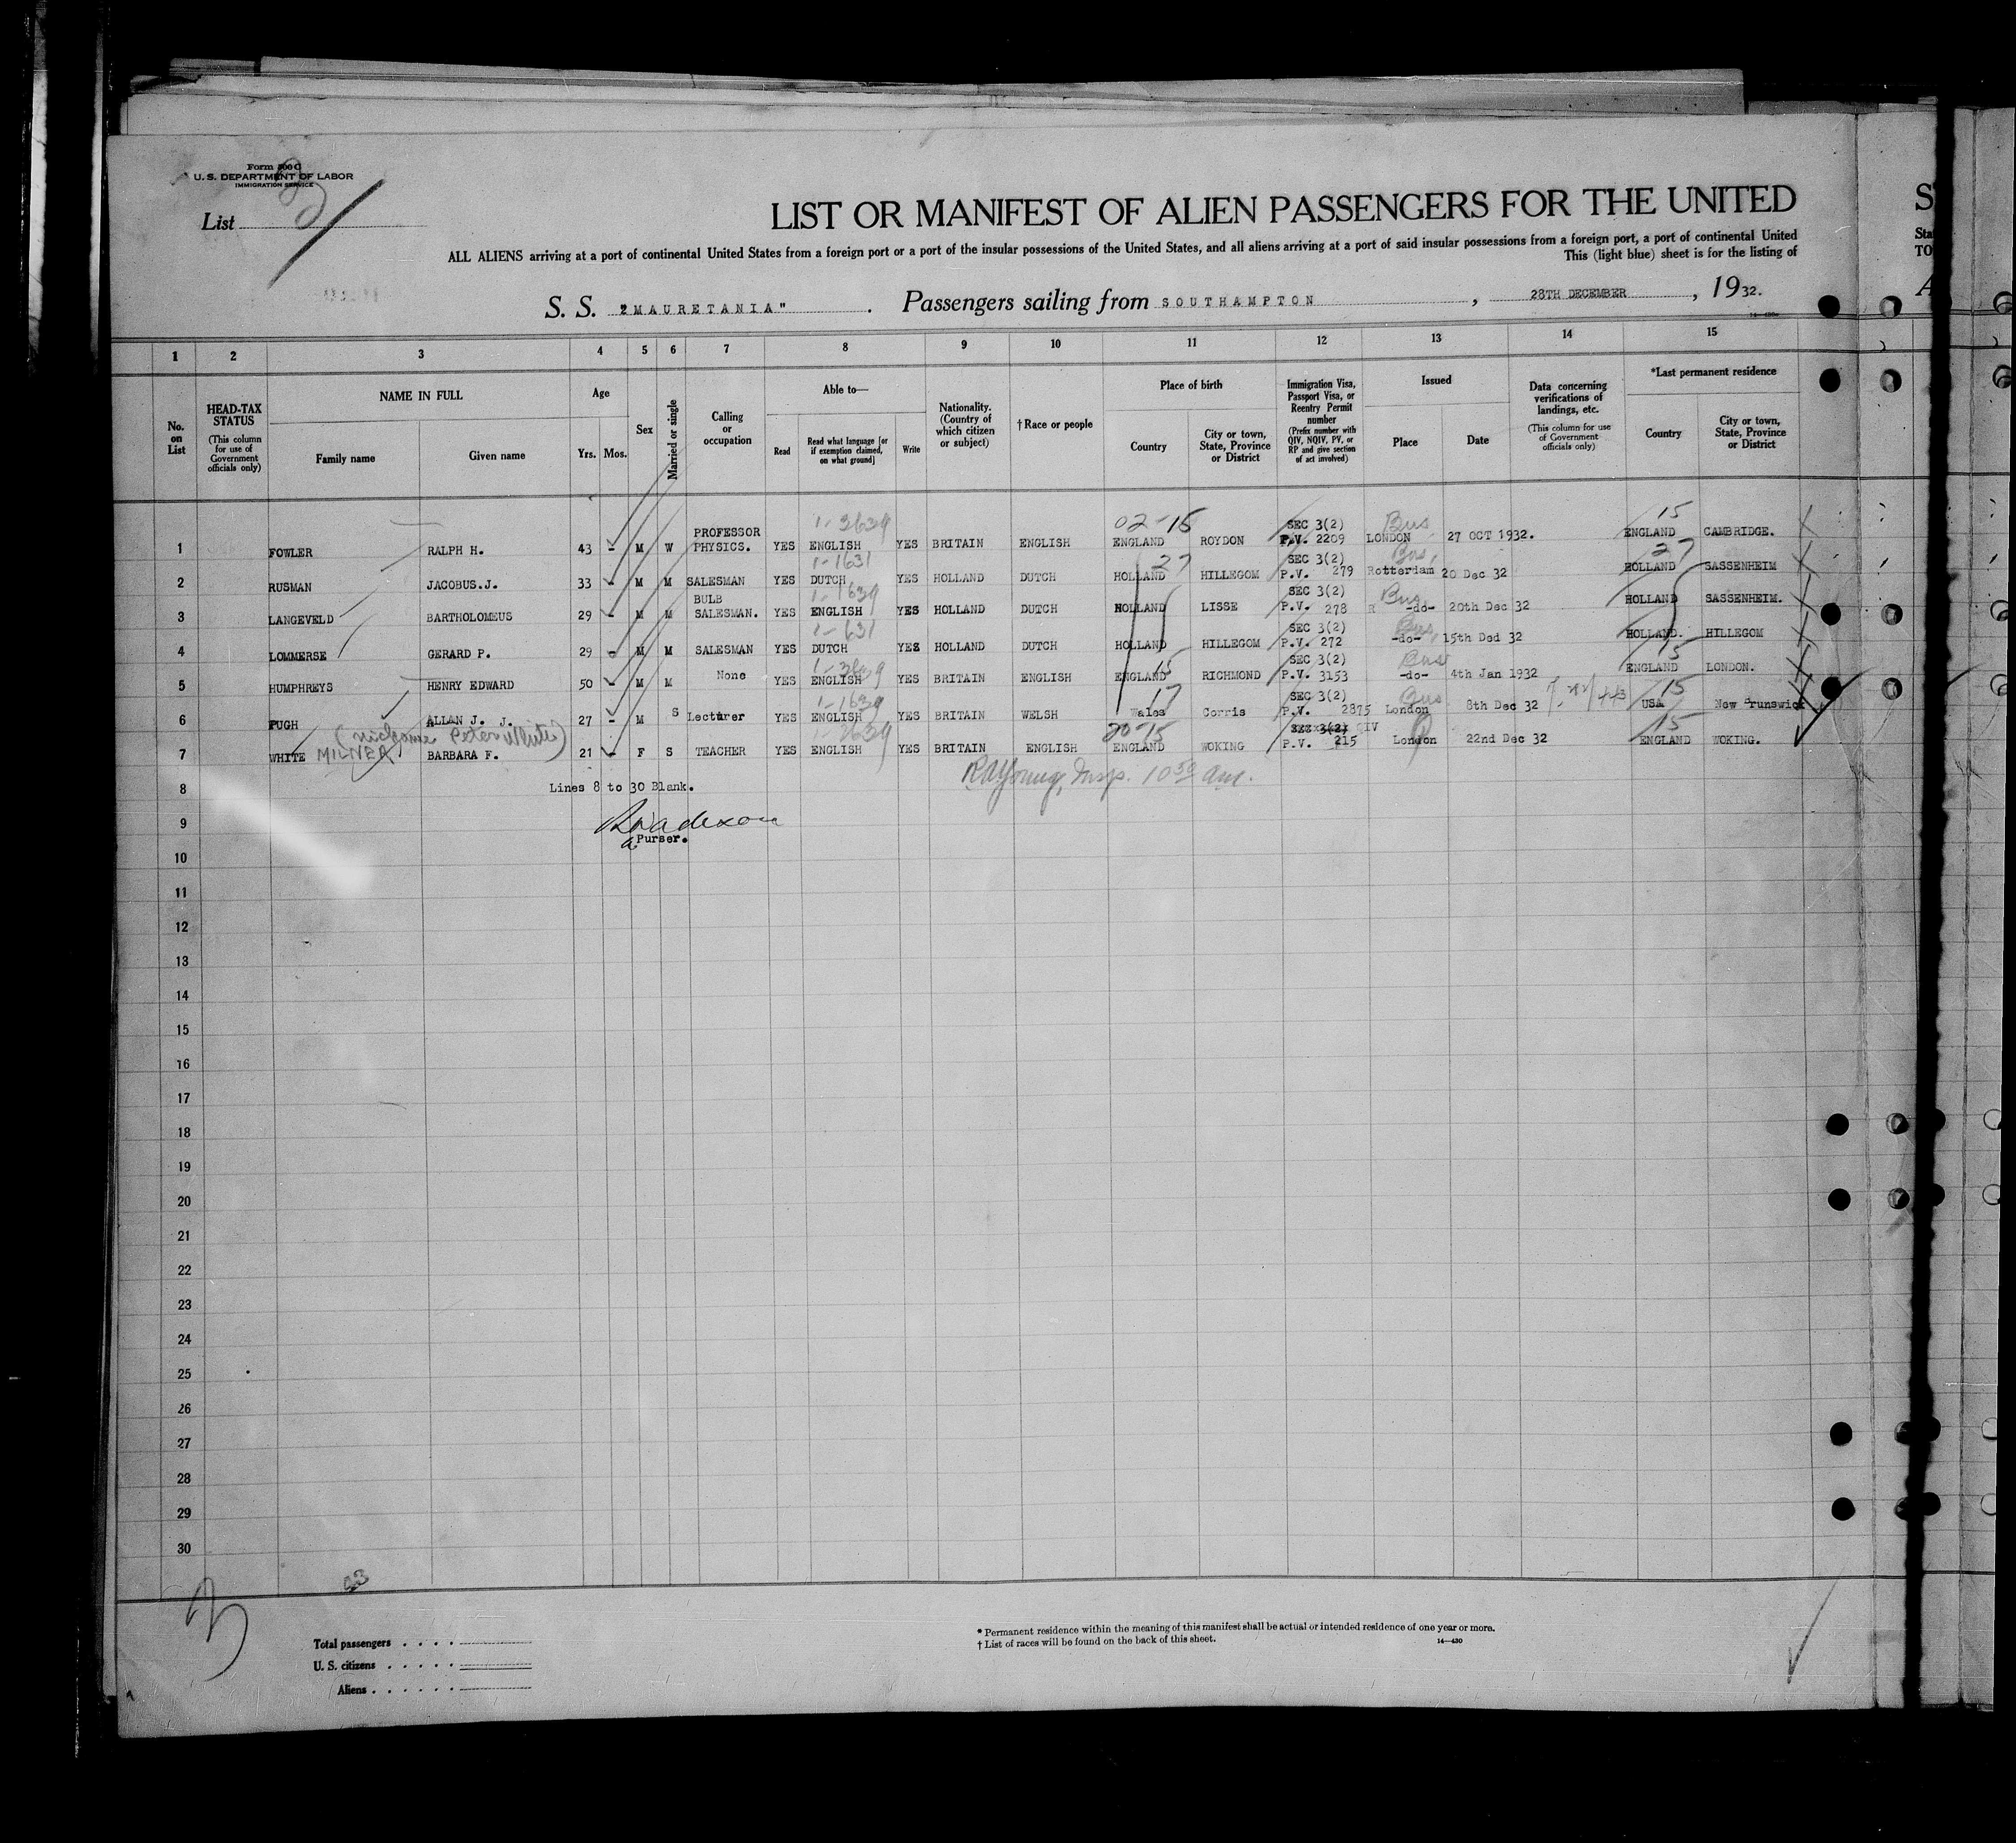 Form 500 C
U. S. DEPARTMENT OF LABOR
IMMIGRATION SERVICE
List
LIST OR MANIFEST OF ALIEN PASSENGERS FOR THE UNITED
ALL ALIENS arriving at a port of continental United States from a foreign port or a port of the insular possessions of the United States, and all aliens arriving at a port of said insular possessions from a foreign port, a port of continental United
This (light blue) sheet is for the listing of
S. S. "MAURETANIA" . Passengers sailing from SOUTHAMPTON , 28TH DECEMBER , 1932.
1 2 3 4 5 6 7 8 9 10 11 12 13 14 15
No. on List
HEAD-TAX STATUS (This column for use of Government officials only)
NAME IN FULL
Family name Given name
Age
Yrs. Mos.
Sex
Married or single
Calling or occupation
Able to—
Read Read what language [or if exemption claimed, on what ground] Write
Nationality. (Country of which citizen or subject)
† Race or people
Place of birth
Country City or town, State, Province or District
Immigration Visa, Passport Visa, or Reentry Permit number (Prefix number with QIV, NQIV, PV, or RP and give section of act involved)
Issued
Place Date
Data concerning verifications of landings, etc. (This column for use of Government officials only)
*Last permanent residence
Country City or town, State, Province or District
1-3639 02-15 Bus 15
1 FOWLER RALPH H. 43 - M W PROFESSOR PHYSICS. YES ENGLISH YES BRITAIN ENGLISH ENGLAND ROYDON SEC 3(2) P.V. 2209 LONDON 27 OCT 1932. ENGLAND CAMBRIDGE.
1-1631 27 Bus 27
2 RUSMAN JACOBUS.J. 33 - M M SALESMAN YES DUTCH YES HOLLAND DUTCH HOLLAND HILLEGOM SEC 3(2) P.V. 279 Rotterdam 20 Dec 32 HOLLAND SASSENHEIM
1-1639 Bus
3 LANGEVELD BARTHOLOMEUS 29 - M M BULB SALESMAN. YES ENGLISH YES HOLLAND DUTCH HOLLAND LISSE SEC 3(2) P.V. 278 R -do- 20th Dec 32 HOLLAND SASSENHEIM.
1-631 Bus
4 LOMMERSE GERARD P. 29 - M M SALESMAN YES DUTCH YES HOLLAND DUTCH HOLLAND HILLEGOM SEC 3(2) P.V. 272 -do- 15th Ded 32 HOLLAND. HILLEGOM
1-3639 15 Bus 15
5 HUMPHREYS HENRY EDWARD 50 - M M None YES ENGLISH YES BRITAIN ENGLISH ENGLAND RICHMOND SEC 3(2) P.V. 3153 -do- 4th Jan 1932 ENGLAND LONDON.
1-1639 17 Bus 15
6 PUGH ALLAN J. J. 27 - M S Lecturer YES ENGLISH YES BRITAIN WELSH Wales Corris SEC 3(2) P.V. 2875 London 8th Dec 32 USA New Brunswick
(nickname Peter White) 1-3639 20-15 15
7 WHITE MILNER BARBARA F. 21 - F S TEACHER YES ENGLISH YES BRITAIN ENGLISH ENGLAND WOKING SEC 3(2) QIV P.V. 215 London 22nd Dec 32 ENGLAND WOKING.
8 Lines 8 to 30 Blank. Insp. 10 50 am.
9
Purser.
10
11
12
13
14
15
16
17
18
19
20
21
22
23
24
25
26
27
28
29
30
Total passengers
U. S. citizens
Aliens
* Permanent residence within the meaning of this manifest shall be actual or intended residence of one year or more.
† List of races will be found on the back of this sheet. 14—430